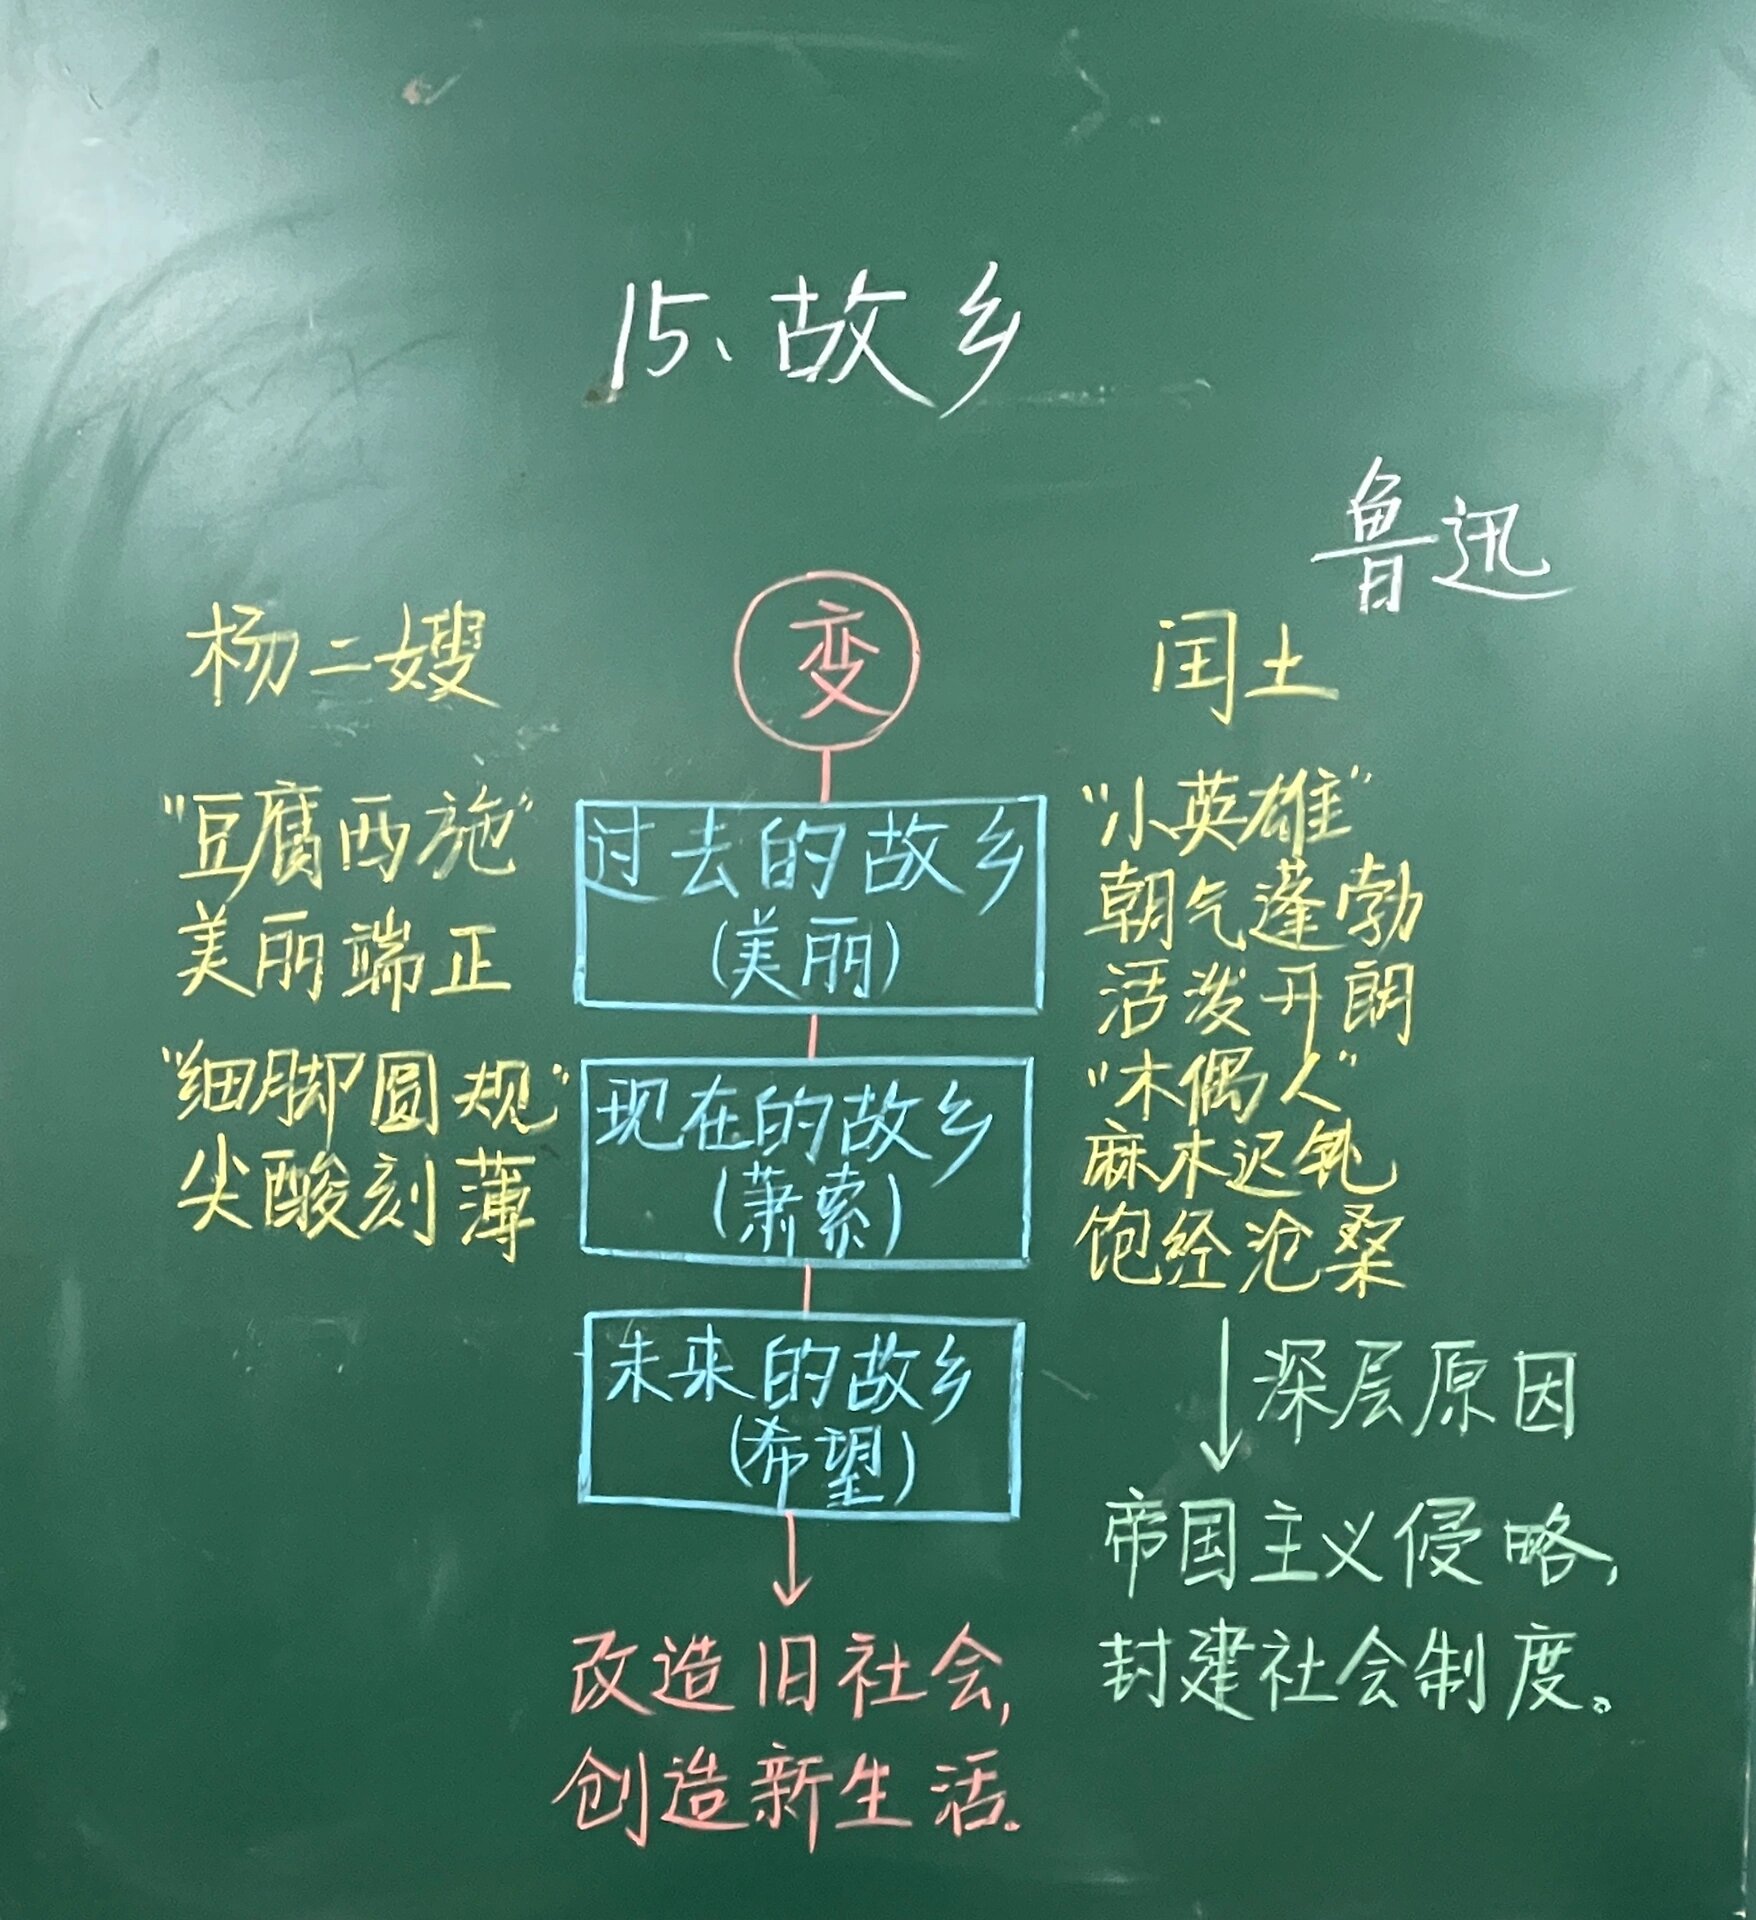 15、故乡
鲁迅
变
杨二嫂
"豆腐西施"
美丽端正
"细脚圆规"
尖酸刻薄
过去的故乡
(美丽)
现在的故乡
(萧索)
未来的故乡
(希望)
改造旧社会,
创造新生活.
闰土
"小英雄"
朝气蓬勃
活泼开朗
"木偶人"
麻木迟钝
饱经沧桑
深层原因
帝国主义侵略,
封建社会制度。